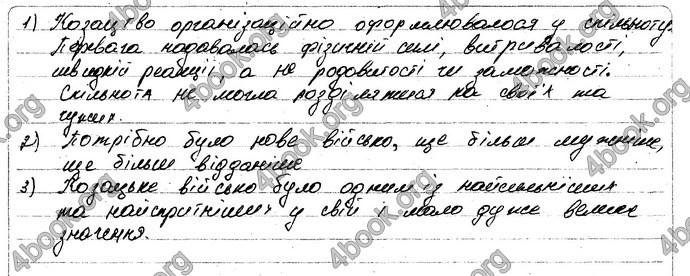 1) Козацтво організаційно оформлювалося у спільноту.
Перевага надавалась фізичній силі, витривалості,
швидкій реакції, а не родовитості чи заможності.
Спільнота не могла розділятися на своїх та
чужих.
2) Потрібно було нове військо, ще більш мужніше,
ще більш відданіше
3) Козацьке військо було одним із найсильніших
та найспритніших у свій і мало дуже велике
значення.